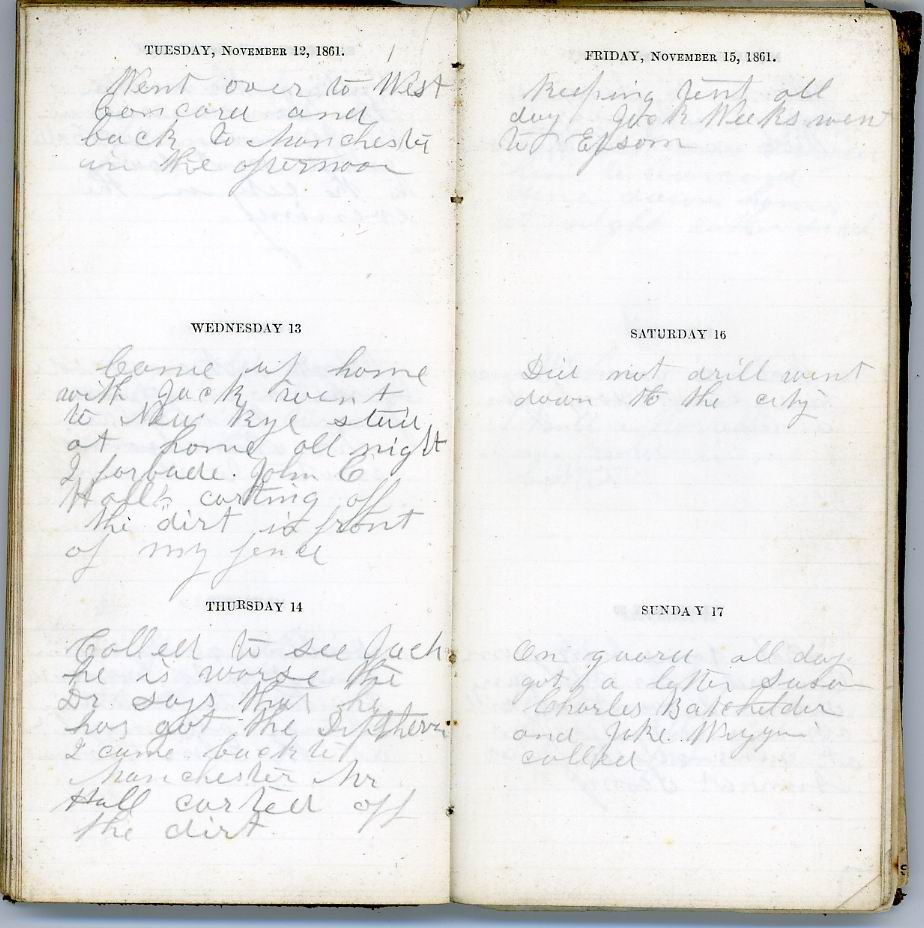 TUESDAY, NOVEMBER 12, 1861.
Went over to West
Concord and
back to Manchester
in the afternoon
WEDNESDAY 13
Came up home
with Jack went
to New Rye staid
at home all night
I forbade John C
Hall's carting off
the dirt in front
of my fence
THURSDAY 14
Called to see Jack
he is worse the
Dr. says that he
has got the Diptheria
I came back to
Manchester Mr
Hall carted off
the dirt
FRIDAY, NOVEMBER 15, 1861.
Keeping tent all
day Jack Weeks went
to Epsom
SATURDAY 16
Did not drill went
down to the city
SUNDAY 17
On guard all day
got a letter Susan
Charles Batchelder
and Jake Wiggin
called